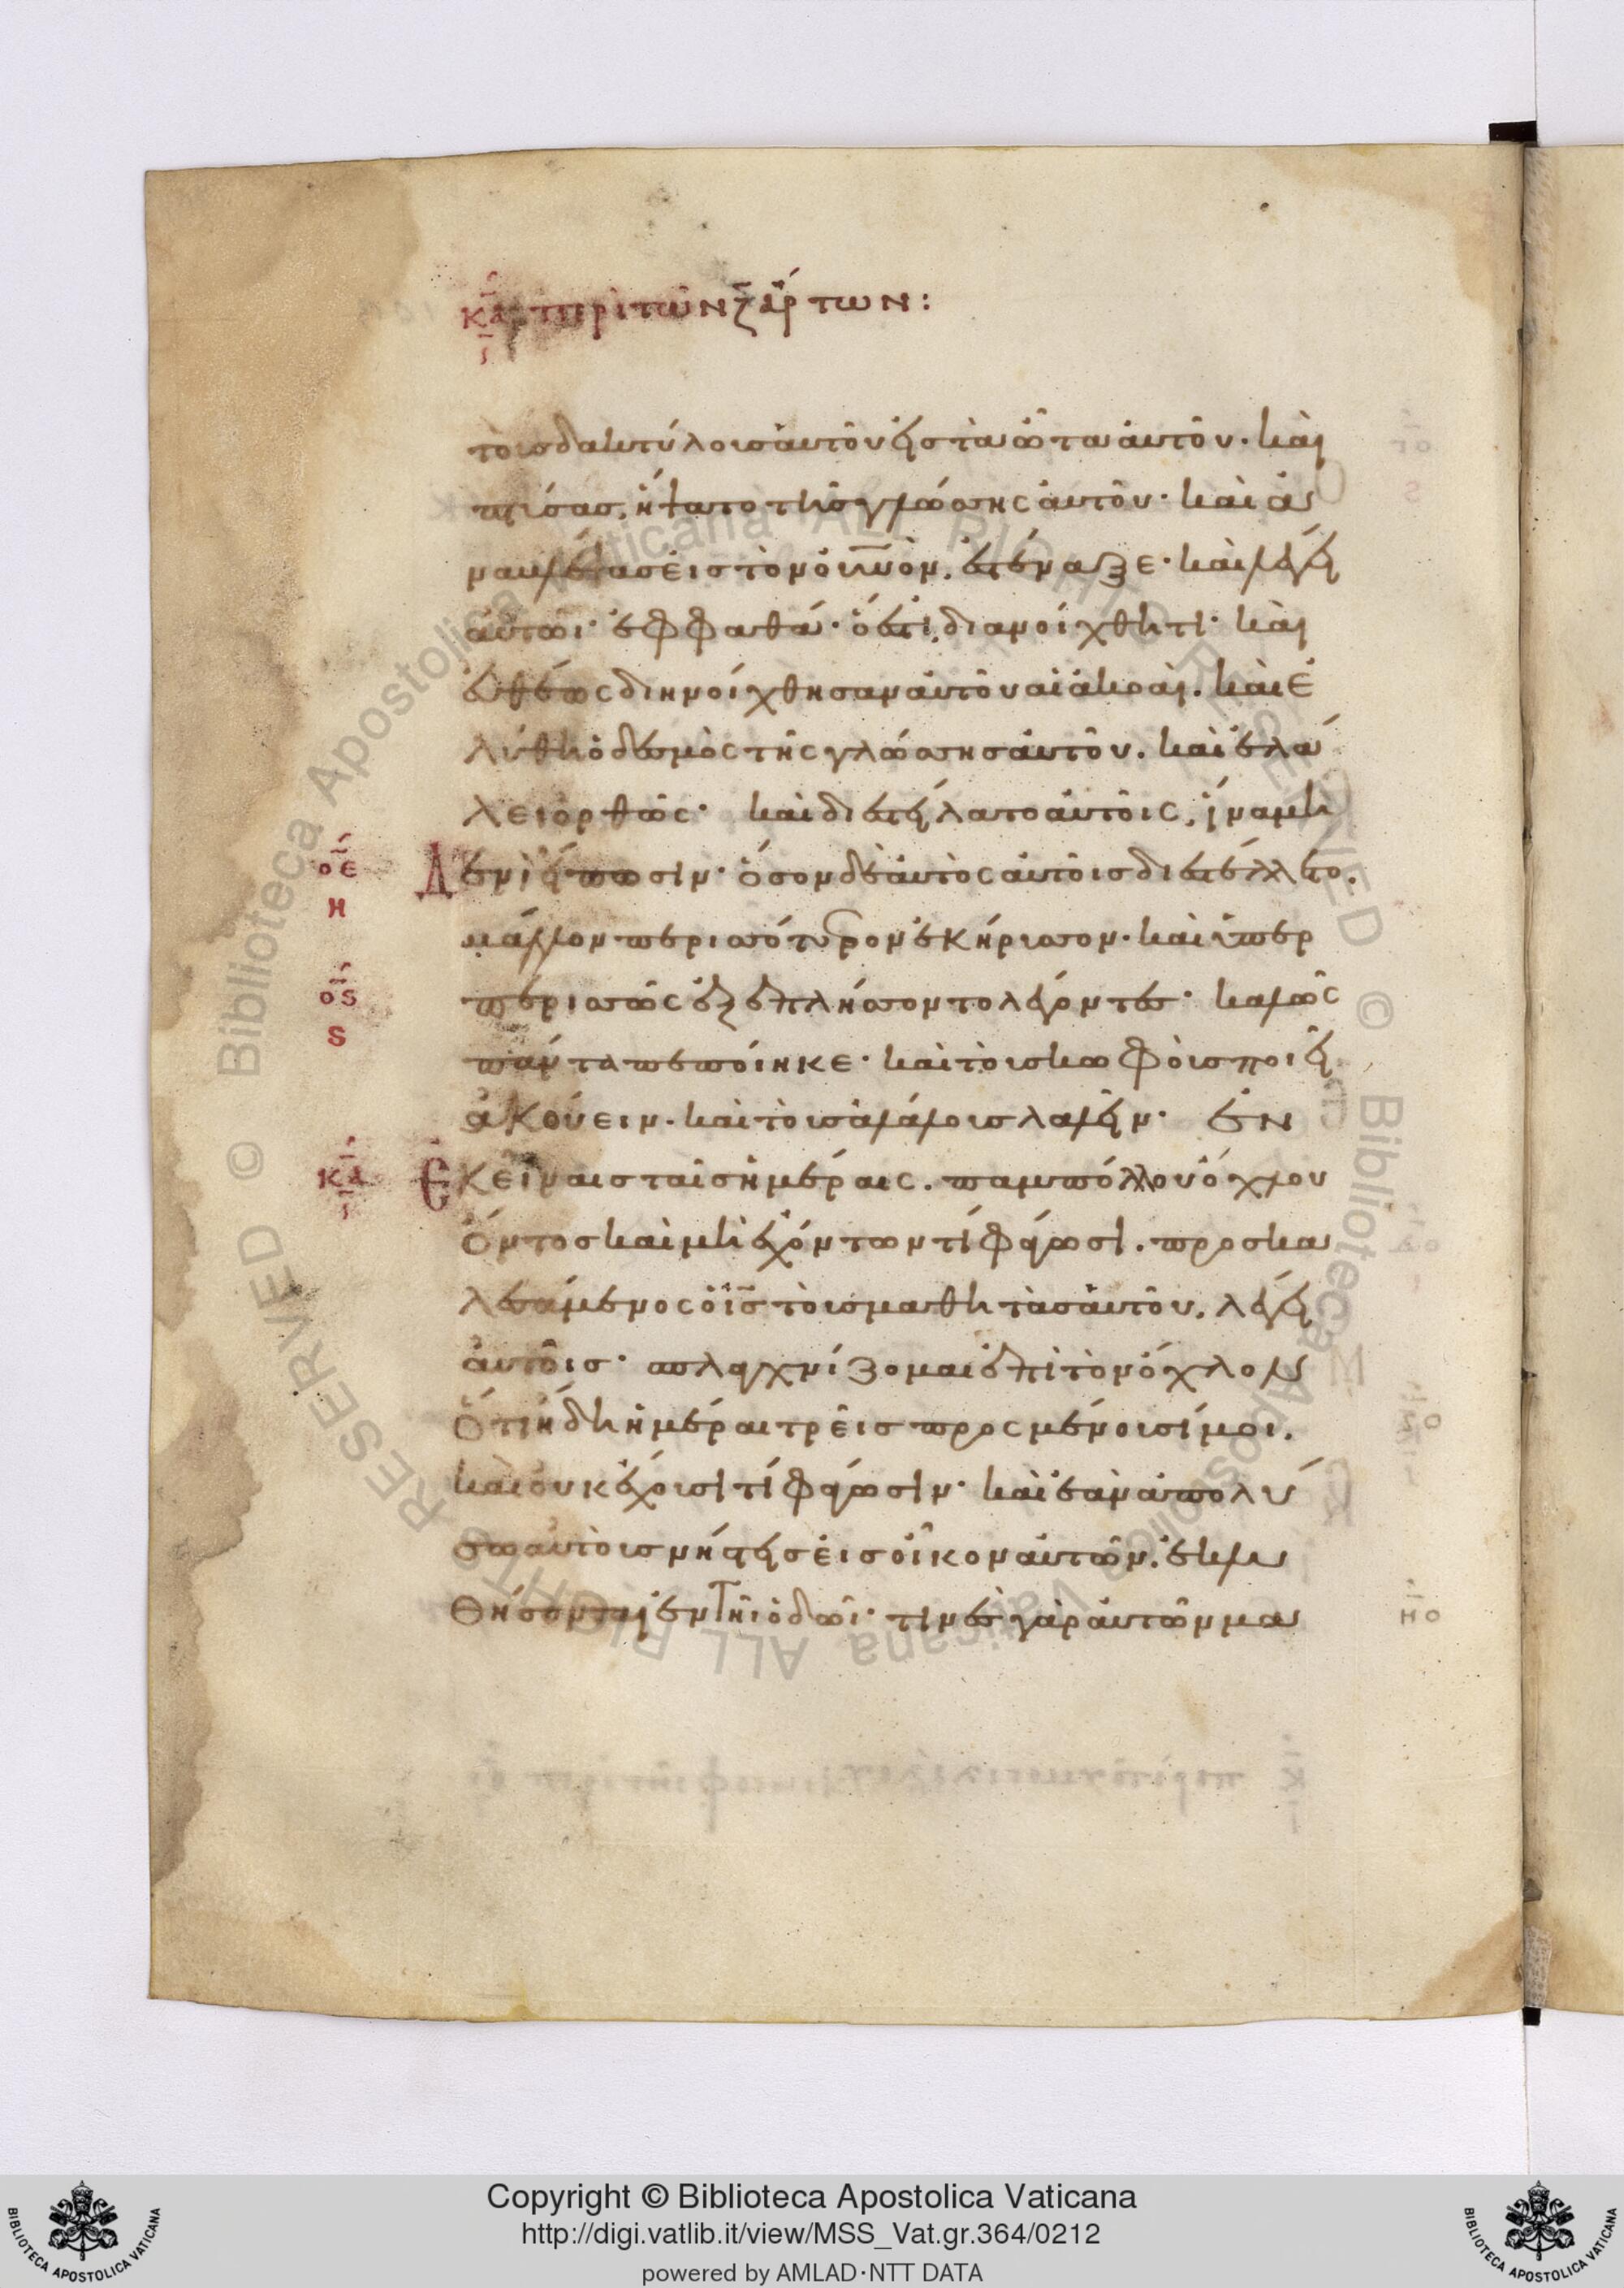 κα περὶ τῶν ζ ἄρτων:
τοὺς δακτύλους αὐτοῦ εἰς τὰ ὦτα αὐτοῦ· καὶ
πτύσας, ἥψατο τῆς γλώσσης αὐτοῦ· καὶ ἀ
ναβλέψας εἰς τὸν οὐνον, ἐστέναξε· καὶ λέγει
αὐτῶι· ἐφφαθά· ὅ ἐστι, διανοίχθητι· καὶ
εὐθέως διηνοίχθησαν αὐτοῦ αἱ ἀκοαί. καὶ ἐ
λύθη ὁ δεσμὸς τῆς γλώσσης αὐτοῦ. καὶ ἐλά
λει ὀρθῶς· καὶ διεστείλατο αὐτοῖς, ἵνα μη
οε
η
Δ ενὶ εἴπωσιν· ὅσον δὲ αὐτὸς αὐτοῖς διεστέλλετο.
μάλλον περισσότερον ἐκήρυσσον· καὶ ὑπερ
ος
ς
περισσῶς ἐξεπλήσσοντο λέγοντες· καλῶς
πάντα πεποίηκε· καὶ τοὺς κωφοὺς ποιεῖ
ἀκούειν. καὶ τοὺς ἀλάλους λαλεῖν· ἐν
κα
Ἐ κείναις ταῖς ἡμέραις. παμπόλλου ὄχλου
ὄντος καὶ μὴ ἐχόντων τί φάγωσι. προσκα
λεσάμενος ὁ ις τοὺς μαθητὰς αὐτοῦ, λέγει
αὐτοῖς· σπλαγχνίζομαι ἐπὶ τὸν ὄχλον
ὅτι ἤδη ἡμέραι τρεῖς προσμένουσί μοι.
καὶ οὐκ ἔχουσι τί φάγωσιν· καὶ ἐὰν ἀπολύ
σω αὐτοὺς νήστεις εἰς οἶκον αὐτῶν, ἐκλυ
θήσονται ἐν τῆι ὁδῶι· τινὲς γὰρ αὐτῶν μα
Copyright © Biblioteca Apostolica Vaticana
http://digi.vatlib.it/view/MSS_Vat.gr.364/0212
powered by AMLAD·NTT DATA
BIBLIOTECA APOSTOLICA VATICANA
BIBLIOTECA APOSTOLICA VATICANA
© Biblioteca Apostolica Vaticana ALL RIGHTS RESERVED
© Biblioteca Apostolica Vaticana ALL RIGHTS RESERVED